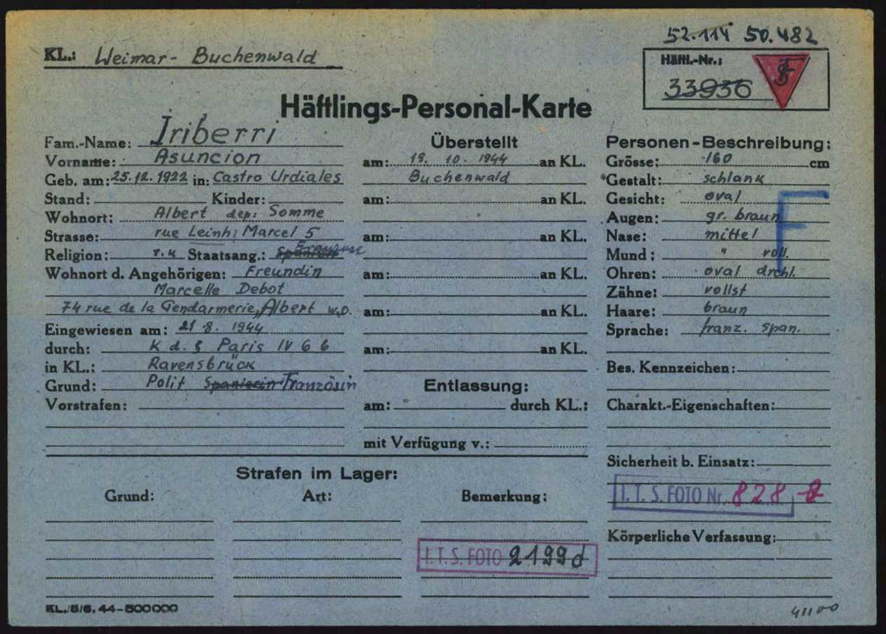 52.114 50.482
KL.: Weimar-Buchenwald
Häftl.-Nr.:
33936
Häftlings-Personal-Karte
Fam.-Name: Iriberri
Vorname: Asuncion
Geb. am: 25.12.1922 in: Castro Urdiales
Stand: Kinder:
Wohnort: Albert dep: Somme
Strasse: rue Leinh: Marcel 5
Religion: r.k Staatsang.:
Wohnort d. Angehörigen: Freundin
Marcelle Debot
74 rue de la Gendarmerie, Albert w.o.
Eingewiesen am: 21.8.1944
durch: K d. S Paris IV 6 6
in KL.: Ravensbrück
Grund: Polit Spanierin Französin
Vorstrafen:
Überstellt
am: 19. 10. 1944 an KL.
Buchenwald
am: an KL.
am: an KL.
am: an KL.
am: an KL.
am: an KL.
Entlassung:
am: durch KL.:
mit Verfügung v.:
Personen-Beschreibung:
Grösse: 160 cm
Gestalt: schlank
Gesicht: oval
Augen: gr. braun
Nase: mittel
Mund: " voll.
Ohren: oval
Zähne: vollst
Haare: braun
Sprache: franz. span.
F
Bes. Kennzeichen:
Charakt.-Eigenschaften:
Sicherheit b. Einsatz:
I.T.S. FOTO Nr. 828
Körperliche Verfassung:
Strafen im Lager:
Grund: Art: Bemerkung:
I.T.S. FOTO 2199d
KL./5/6. 44-500000
41100